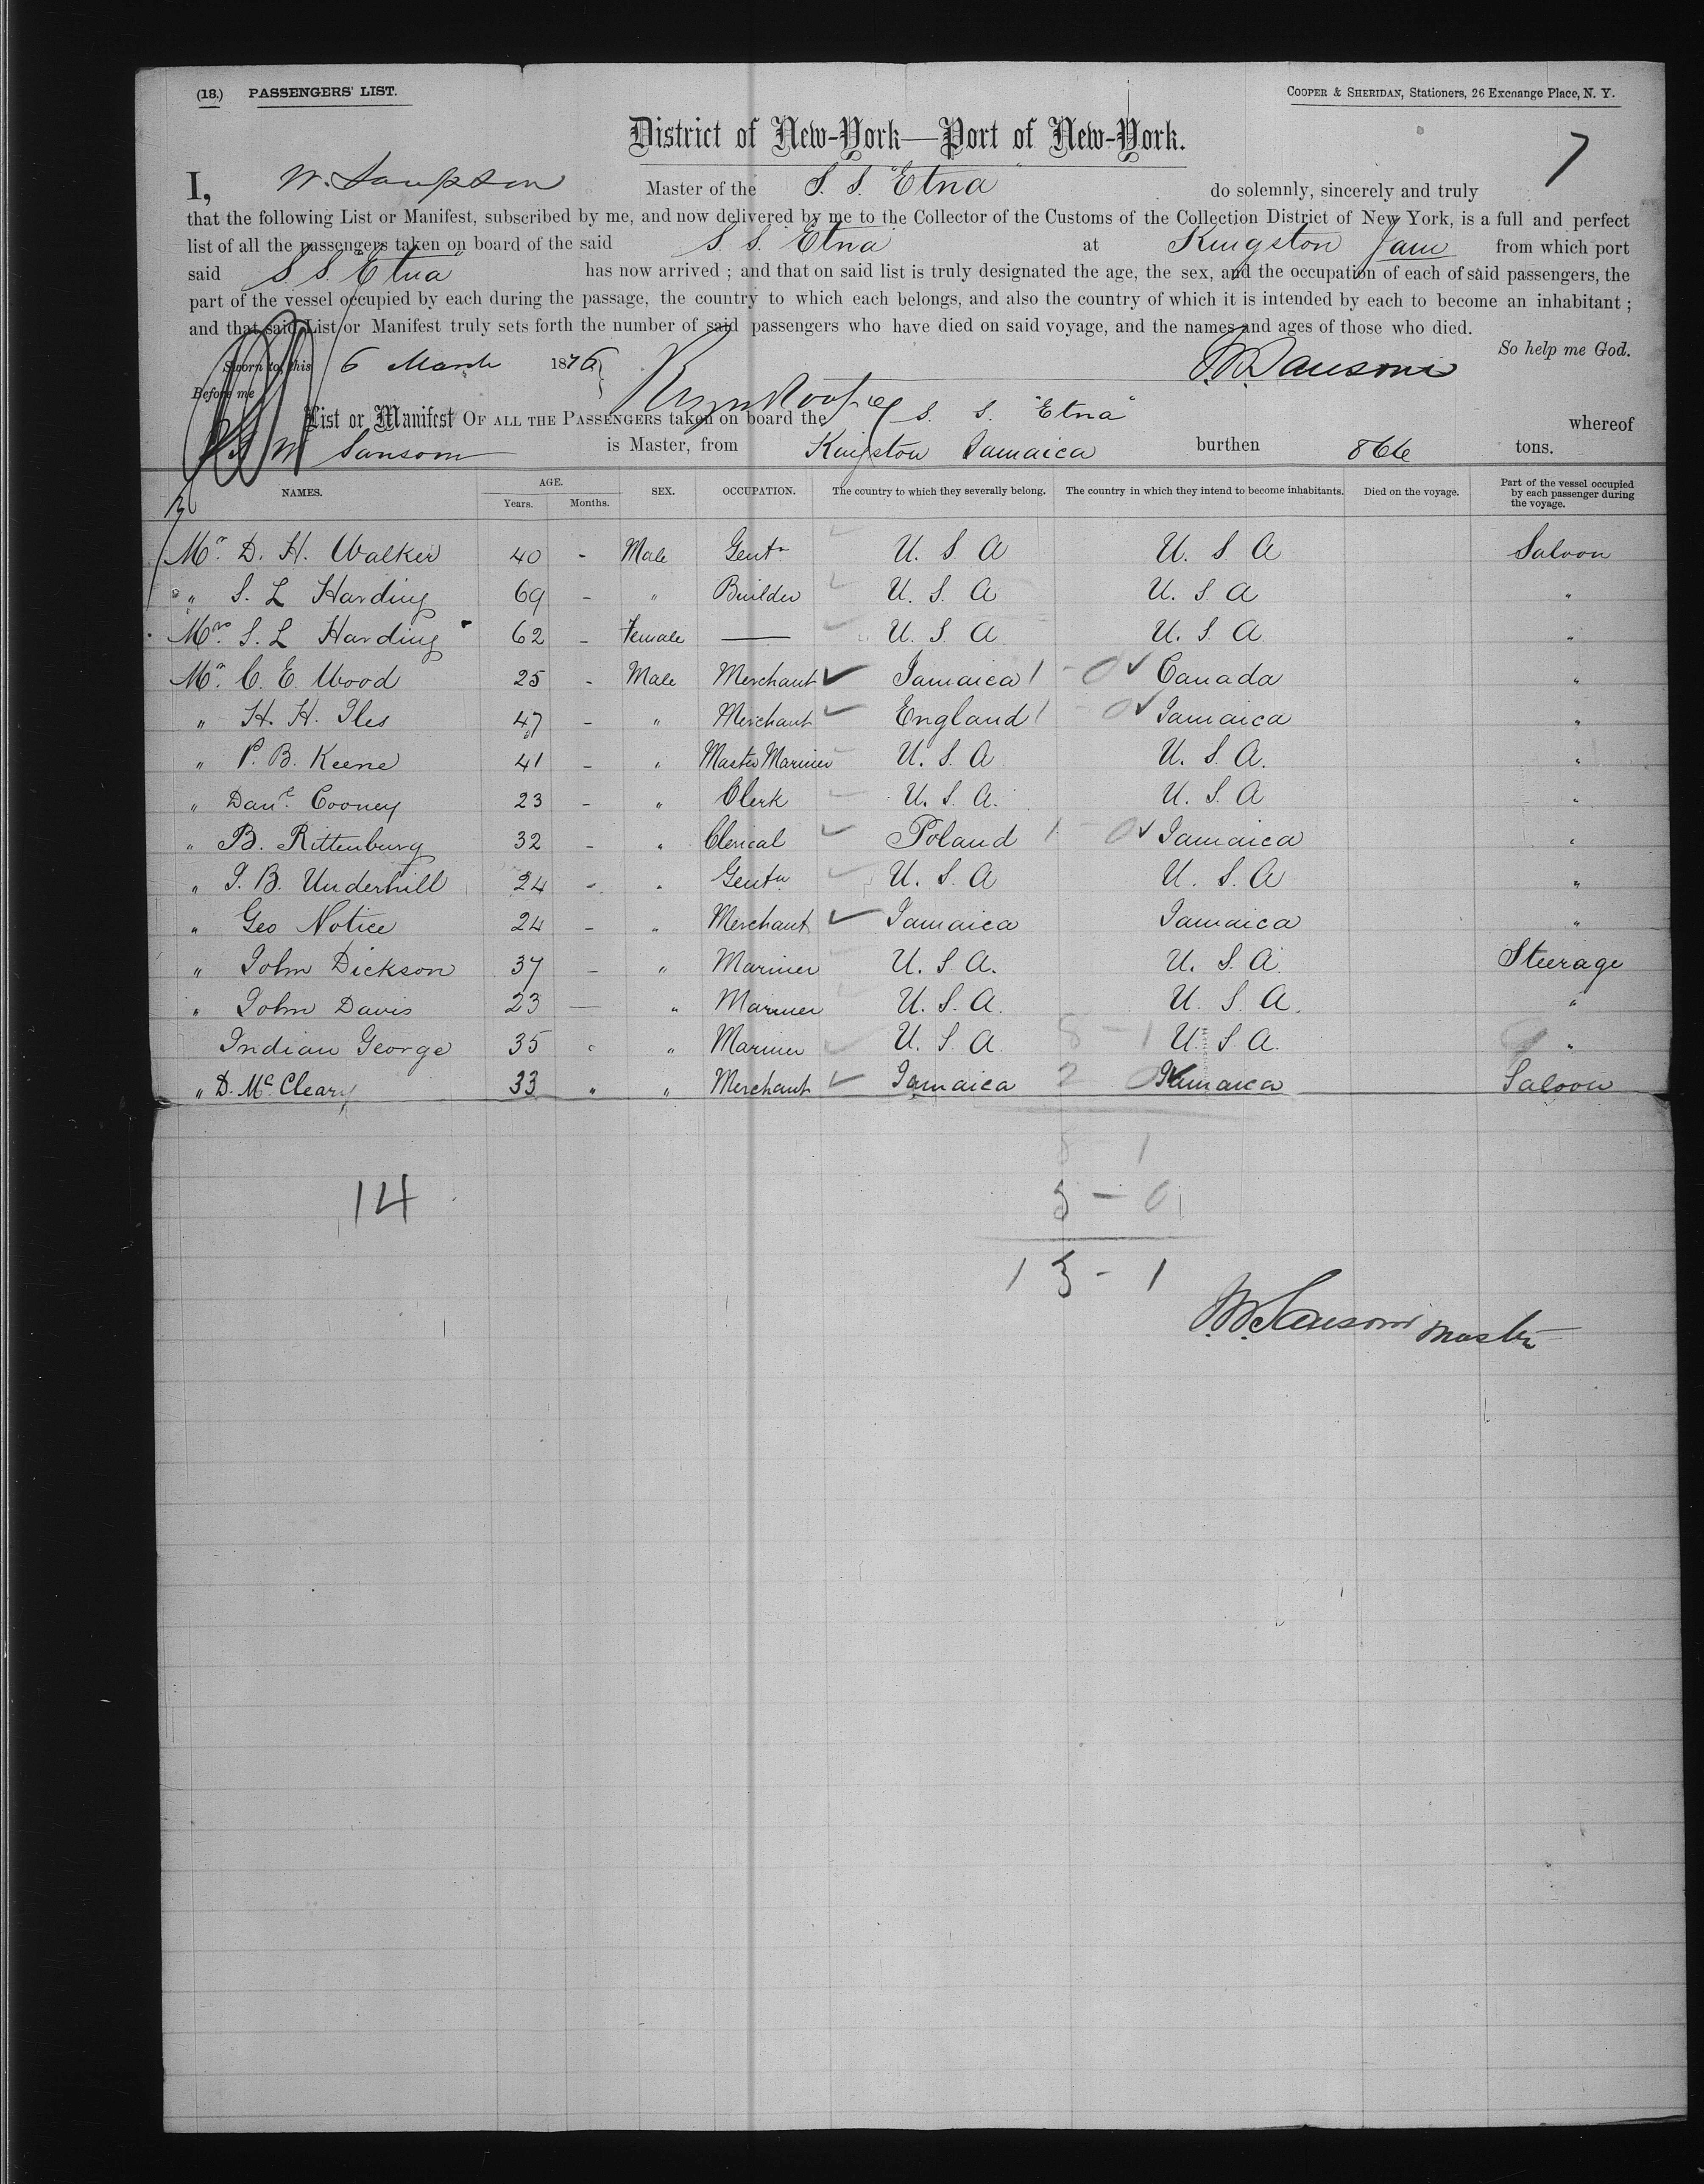 (18.) PASSENGERS' LIST. COOPER & SHERIDAN, Stationers, 26 Exchange Place, N. Y.
District of New-York—Port of New-York.
7
I, W. Sampson Master of the S. S. "Etna" do solemnly, sincerely and truly
that the following List or Manifest, subscribed by me, and now delivered by me to the Collector of the Customs of the Collection District of New York, is a full and perfect
list of all the passengers taken on board of the said S. S. "Etna" at Kingston Jam from which port
said S. S. "Etna" has now arrived ; and that on said list is truly designated the age, the sex, and the occupation of each of said passengers, the
part of the vessel occupied by each during the passage, the country to which each belongs, and also the country of which it is intended by each to become an inhabitant ;
and that said List or Manifest truly sets forth the number of said passengers who have died on said voyage, and the names and ages of those who died.
So help me God.
Sworn to, this 6 March 1876
Before me
List or Manifest OF ALL THE PASSENGERS taken on board the S. S. "Etna" whereof
W Sansom is Master, from Kingston Jamaica burthen 866 tons.
NAMES. AGE. Years. Months. SEX. OCCUPATION. The country to which they severally belong. The country in which they intend to become inhabitants. Died on the voyage. Part of the vessel occupied by each passenger during the voyage.
Mr. D. H. Walker 40 - Male Gentn U. S A U. S A Saloon
" S. L Harding 69 - " Builder U. S. A U. S A "
Mrs. S. L Harding 62 - Female — U. S. A U. S. A "
Mr. C. E. Wood 25 - Male Merchant ✓ Jamaica 1 - 0 ✓ Canada "
" H. H. Iles 47 - " Merchant ✓ England 1 - 0 ✓ Jamaica "
" P. B. Keene 41 - " Master Mariner U. S. A U. S. A. "
" Danl. Cooney 23 - " Clerk U. S. A. U. S. A "
" B. Rittenburg 32 - " Clerical ✓ Poland 1 - 0 ✓ Jamaica "
" J. B. Underhill 24 - " Gentn U. S. A U. S. A "
" Geo Notice 24 - " Merchant ✓ Jamaica Jamaica "
" John Dickson 37 - " Mariner U. S. A. U. S. A. Steerage
" John Davis 23 — " Mariner U. S. A. U. S. A. "
Indian George 35 " " Mariner U. S. A 8 - 1 U. S. A. "
" D. McCleary 33 " " Merchant ✓ Jamaica 2 0 Jamaica Saloon
8 1
14 5 - 0
13 - 1
W. Sansom Master